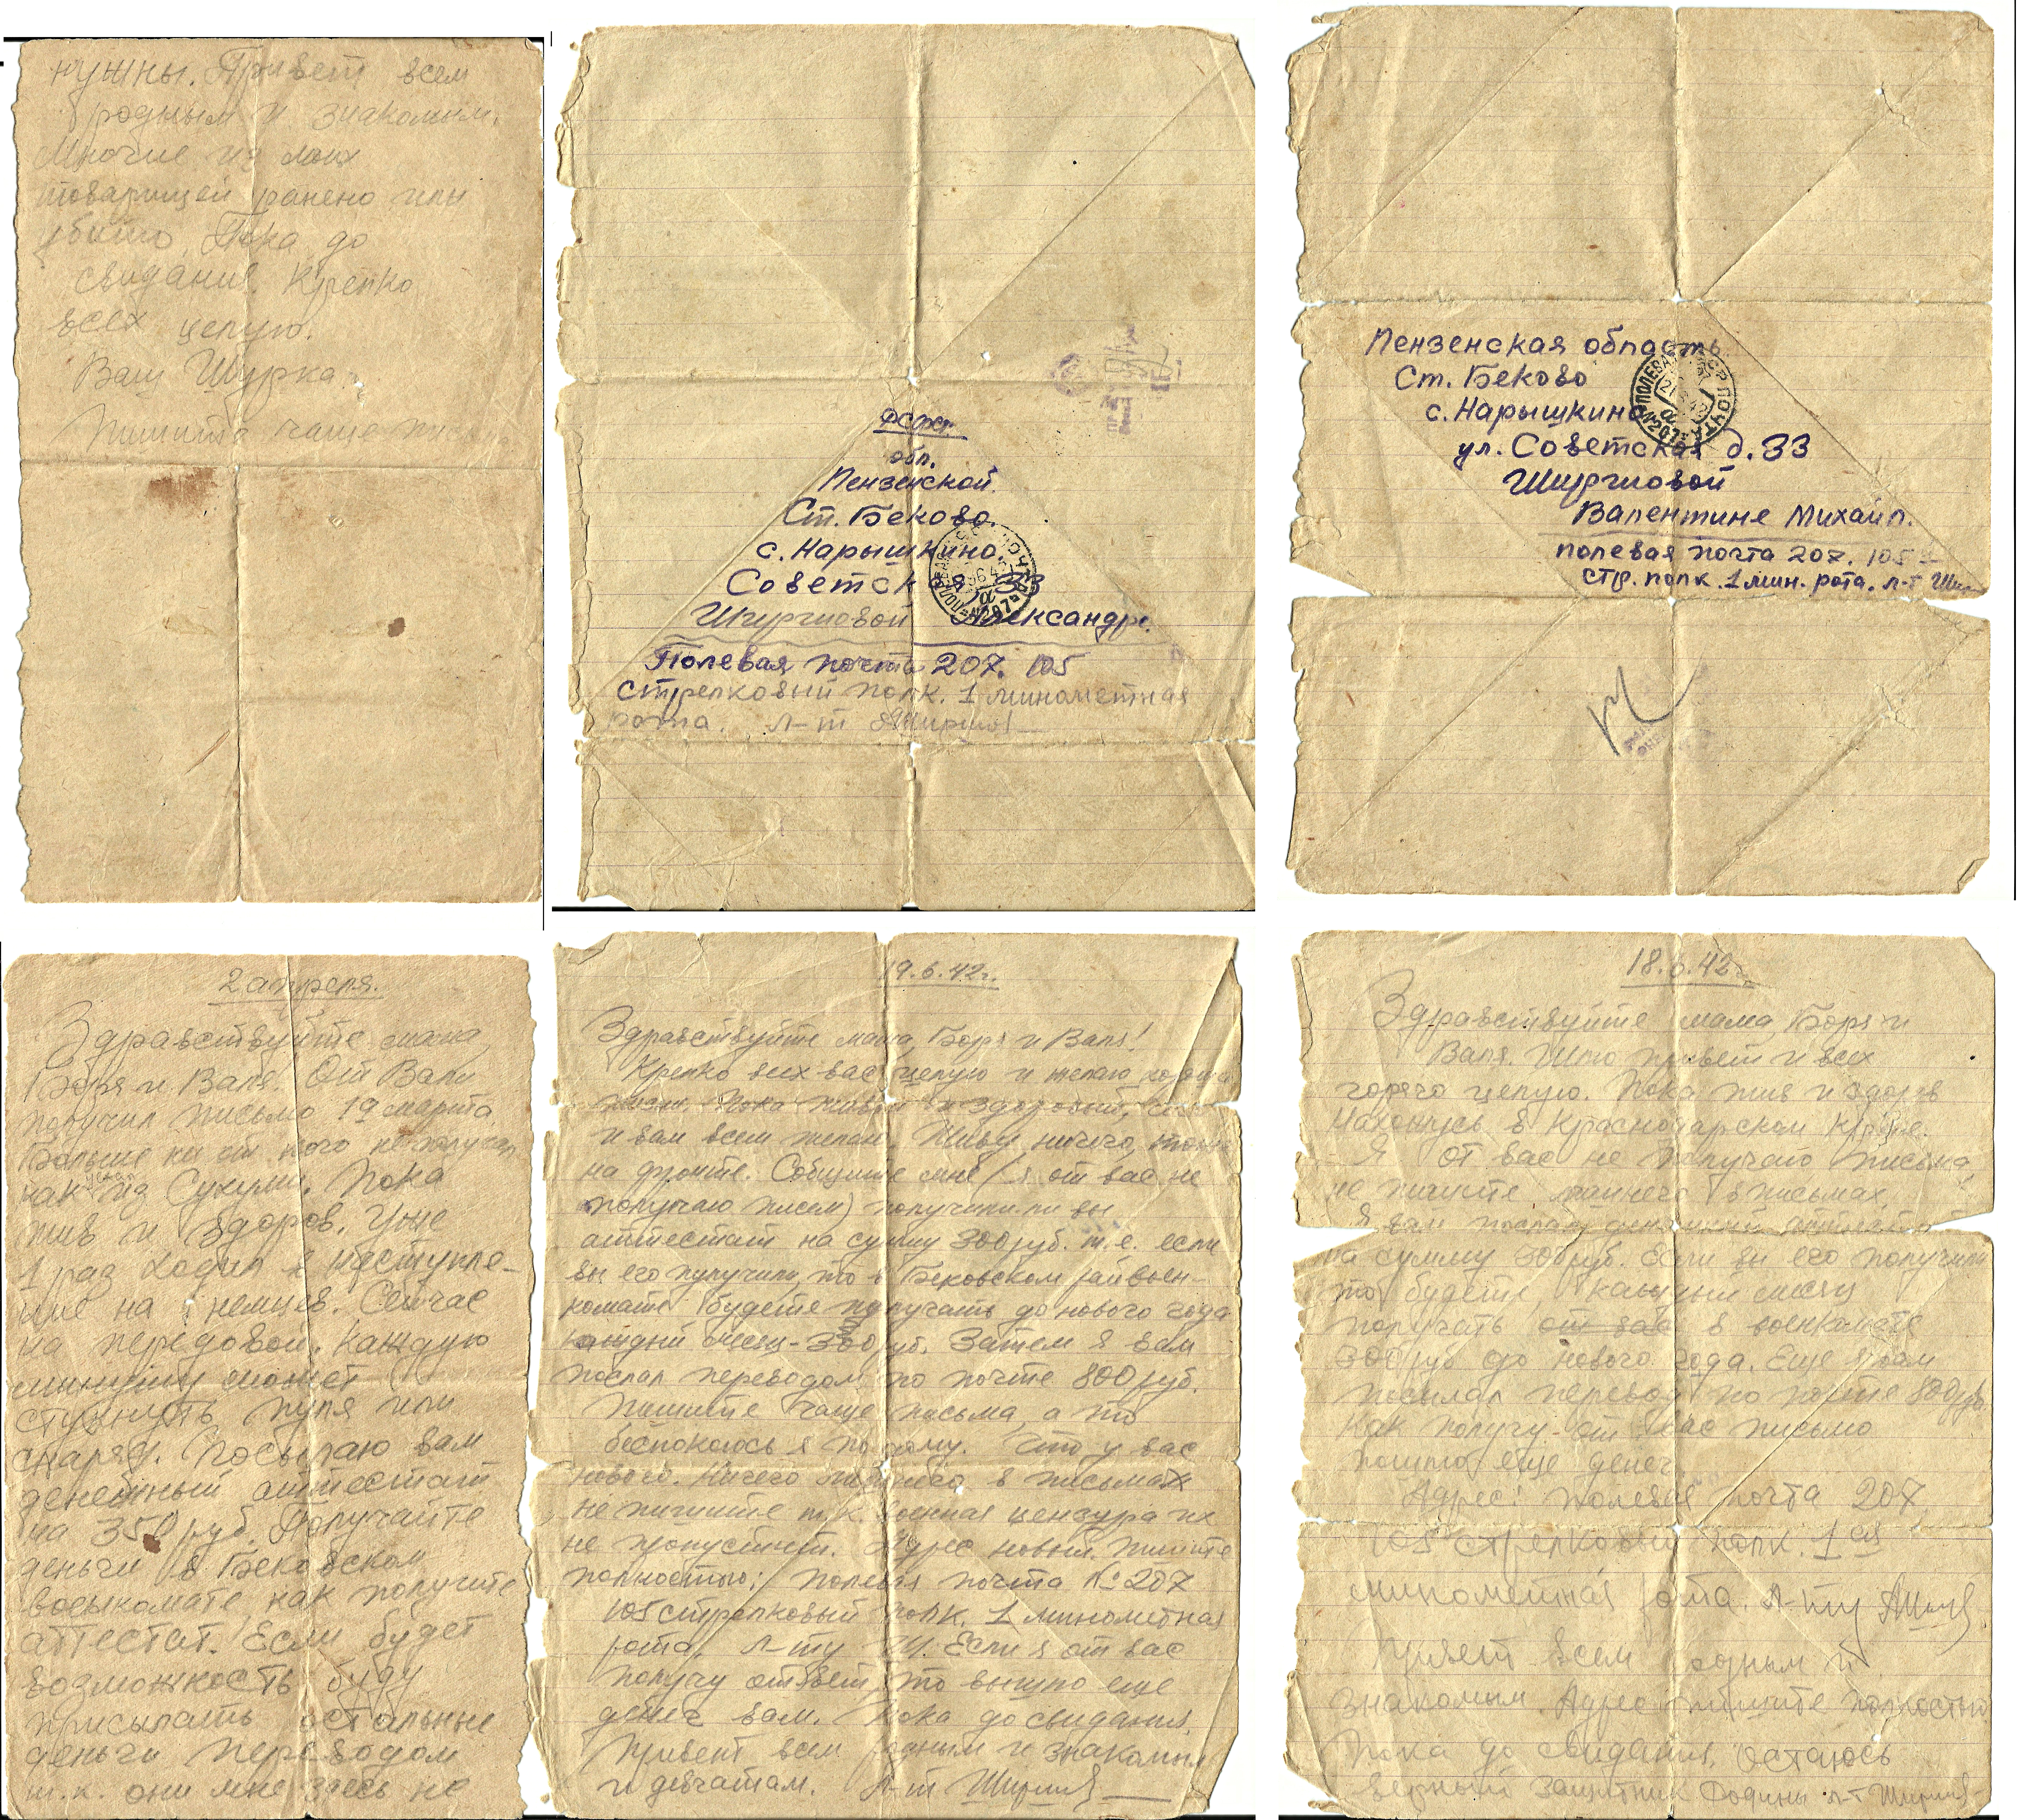 нужны. Привет всем
родным и знакомым.
Многие из моих
товарищей ранено или
убито. Пока до
свидания. Крепко
всех целую.
Ваш Шурка.
Пишите чаще
обл.
Пензенской.
Ст. Беково.
с. Нарышкино.
Советская 33
Александре.
Полевая почта 207. 105
стрелковый полк. 1 минометная
рота. л-т
Пензенская область
Ст. Беково
с. Нарышкино
ул. Советская д. 33
Валентине Михайл.
полевая почта 207. 105
стр. полк. 1 мин. рота. л-т
2 апреля.
Здравствуйте мама,
Боря и Валя. От Вали
получил письмо 19 марта
Больше ни от кого не получал
как из Сухуми. Пока
жив и здоров. Уже
1 раз ходил в наступле-
ние на немцев. Сейчас
на передовой. Каждую
минуту может
стукнуть пуля или
снаряд. Посылаю вам
денежный аттестат
на 350 руб. Получайте
деньги в Бековском
военкомате как получите
аттестат. Если будет
возможность буду
присылать остальные
деньги переводом
т.к. они мне здесь не
19.6.42г.
Здравствуйте мама, Боря и Валя!
Крепко всех вас целую и желаю
Пока живой и здоровый,
и вам всем желаю. Живу ничего,
на фронте. Сообщите мне (я от вас не
получаю писем) получили ли вы
аттестат на сумму 300 руб. т.е. если
вы его получили, то в Бековском райвоен-
комате будете получать до нового года
каждый месяц - 300 руб. Затем я вам
послал переводом по почте 800 руб.
Пишите чаще письма, а то
беспокоюсь я по дому. Что у вас
нового. Ничего лишнего в письмах
не пишите т.к. военная цензура их
не пропустит. Адрес новый. Пишите
полностью: полевая почта № 207
105 стрелковый полк. 1 минометная
рота, л-ту Ш. Если я от вас
получу ответ, то вышлю еще
денег вам. Пока до свидания.
Привет всем родным и знакомым
и девчатам. л-т
18.6.42г.
Здравствуйте мама, Боря и
Валя. Шлю привет и всех
горячо целую. Пока жив и здоров
Нахожусь в Краснодарском Крае.
Я от вас не получаю письма,
не пишите лишнего в письмах.
Я вам послал денежный аттестат
на сумму 300 руб. Если вы его получили
то будете каждый месяц
получать от вас в военкомате
300 руб до нового года. Еще я вам
посылал перевод по почте 800 руб.
Как получу от вас письмо
пошлю еще денег.
Адрес: полевая почта 207,
105 стрелковый полк. 1ая
минометная рота. л-ту
Привет всем родным и
знакомым. Адрес пишите полностью
Пока до свидания, остаюсь
верный защитник Родины л-т